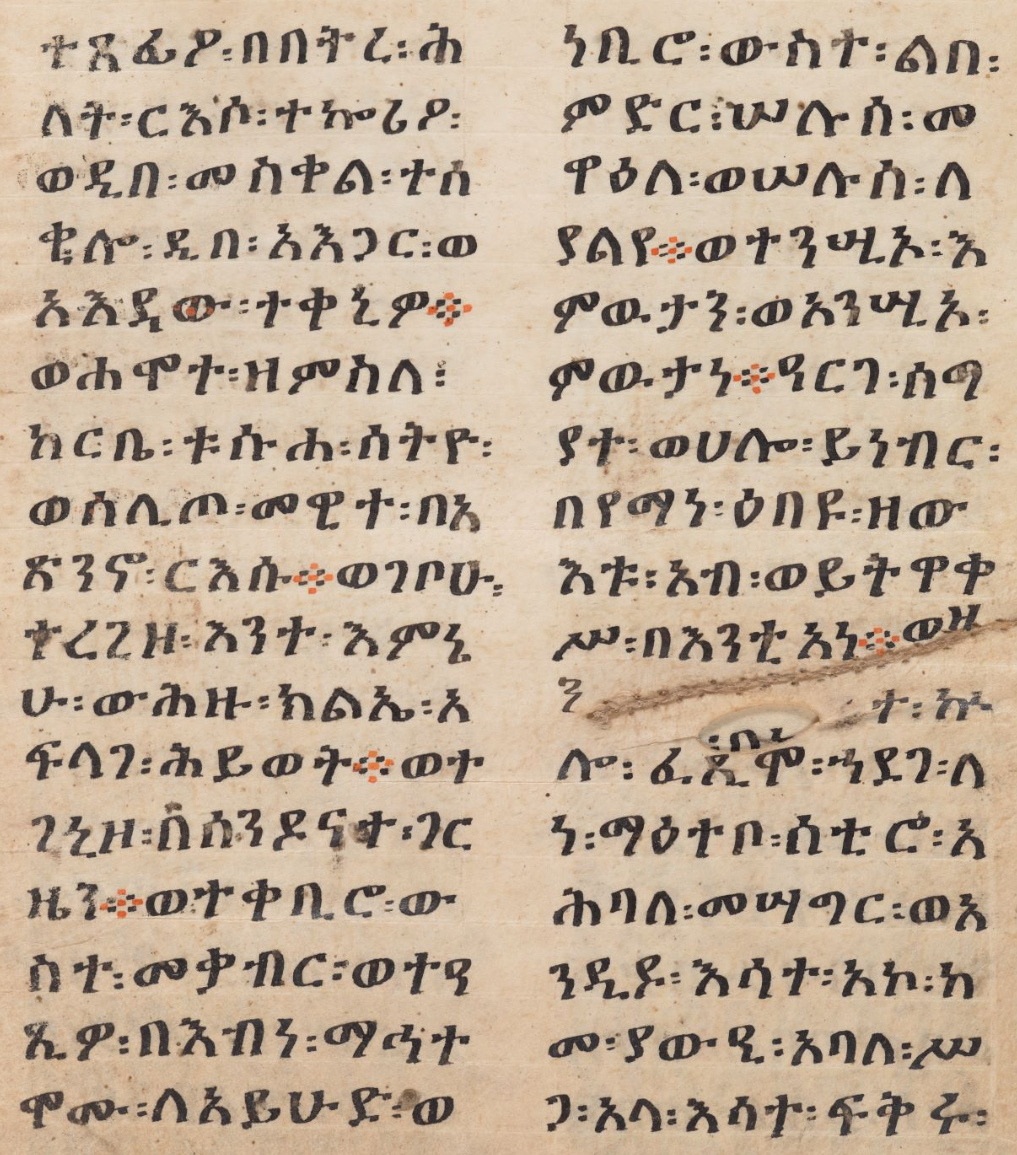 ተጸፊዖ፡በበትረ፡ሕ
ለት፡ርእሶ፡ተኰሪዖ፡
ወዲበ፡መስቀል፡ተሰ
ቂሎ፡ዲበ፡አእጋር፡ወ
አእዳው፡ተቀኒዎ፨
ወሐሞተ፡ዘምስለ፡
ከርቤ፡ቱሱሐ፡ሰትዮ፡
ወሰሊጦ፡መዊተ፡በአ
ጽንኖ፡ርእሱ፨ወገቦሁ፡
ተረግዘ፡እንተ፡እምኔ
ሁ፡ውሕዙ፡ክልኤ፡አ
ፍላገ፡ሕይወት፨ወተ
ገኒዘ፡በሰንዶናተ፡ገር
ዜን፨ወተቀቢሮ፡ው
ስተ፡መቃብር፡ወተዓ
ጺዎ፡በእብነ፡ማኅተ
ሞሙ፡ለአይሁድ፡ወ
ነቢሮ፡ውስተ፡ልበ፡
ምድር፡ሠሉሰ፡መ
ዋዕለ፡ወሠሉሰ፡ለ
ያልየ፨ወተንሢኦ፡እ
ምዉታን፡ወአንሢኦ፡
ምዉታነ፨ዓርገ፡ሰማ
ያተ፡ወሀሎ፡ይነብር፡
በየማነ፡ዕበዩ፡ዘው
እቱ፡አብ፡ወይትዋቀ
ሥ፡በእንቲአነ፨ወዝ
ን ተ፡ኵ
ሎ፡ፈጺሞ፡ኃደገ፡ለ
ነ፡ማዕተቦ፡ሰቲሮ፡አ
ሕባለ፡መሣግር፡ወአ
ንዲዶ፡እሳተ፡አኮ፡ከ
መ፡ያውዒ፡አባለ፡ሥ
ጋ፡አላ፡እሳተ፡ፍቅሩ፡